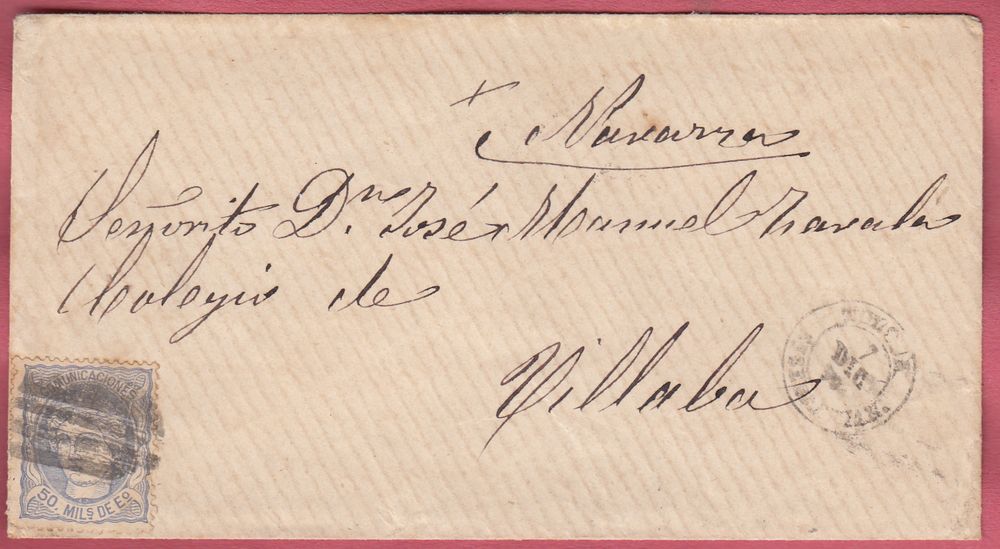 Navarra
Señorito Dn. José Manuel Zavala
Colegio de
Villaba
COMUNICACIONES
50. MILS DE EO
7
DIC